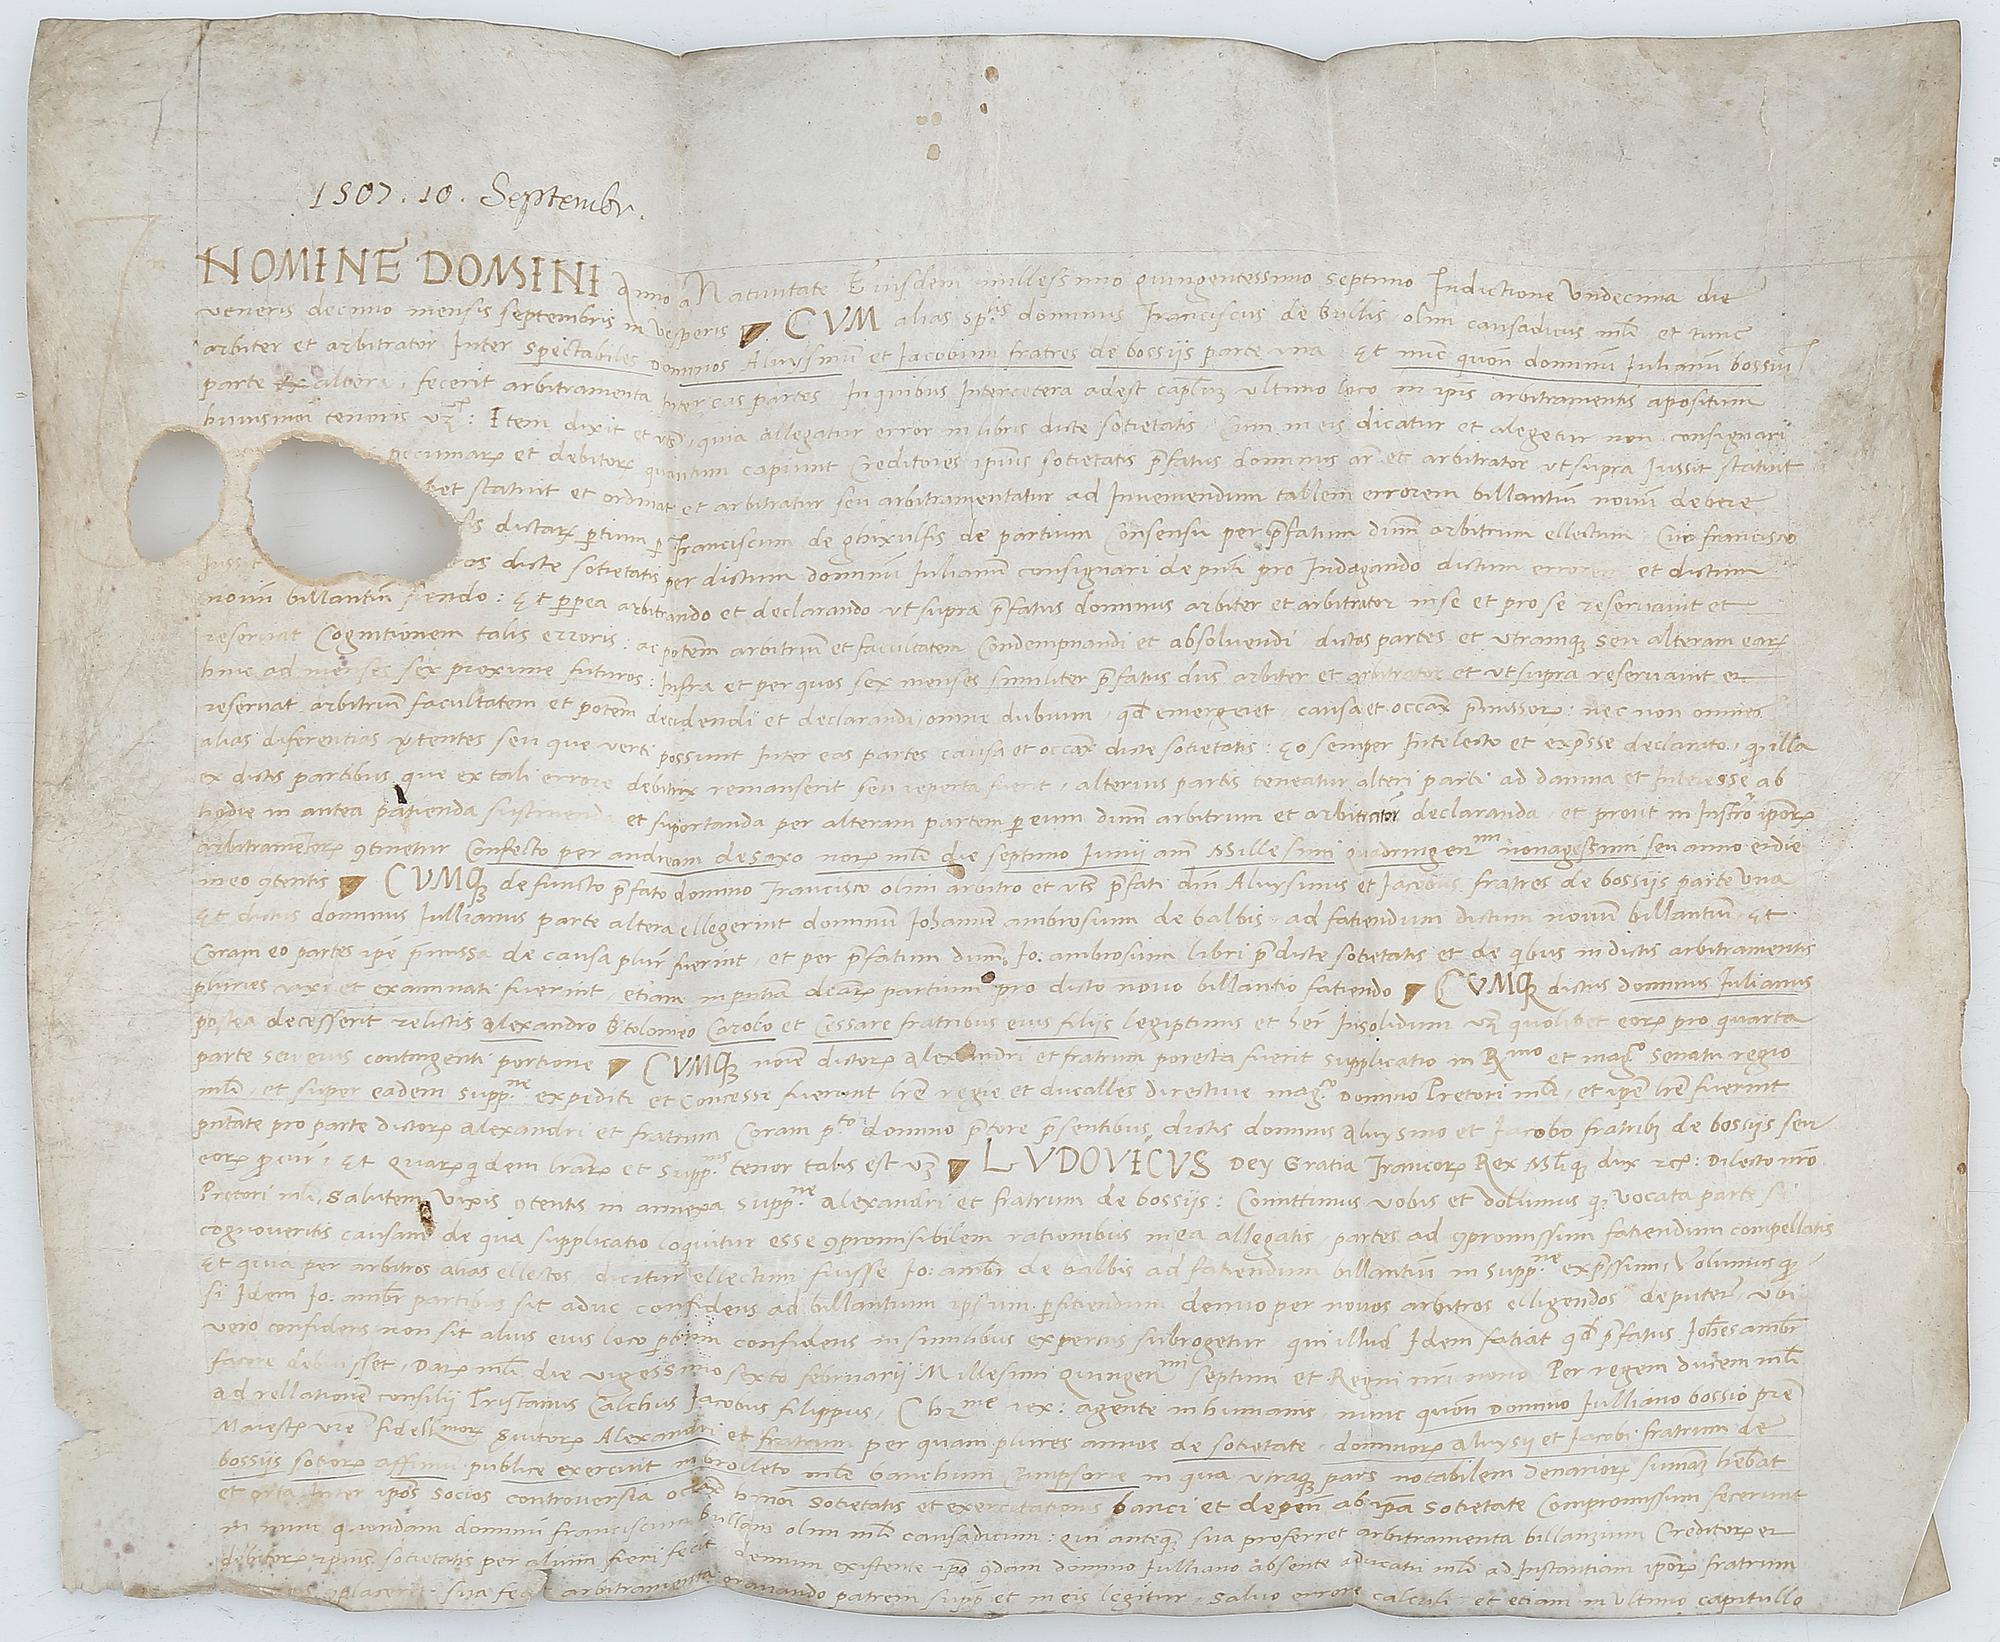 1507. 10. Septembr.
NOMINE DOMINI Anno a Nativitate Eiusdem millessimo quingentessimo septimo Indictione Undecima die
veneris decimo mensis septembris in vesperis CVM alias sp.lis dominus Franciscus de bullis olim causadicus mli et tunc
arbiter et arbitrator Inter spectabiles dominos Aluysium et Iacobum fratres de bossijs parte una Et nunc quon dominu Iulianu bossiu
parte ex altera, fecerit arbitramenta Inter eas partes In quibus Intercetera adest ultimo loco in ipis arbitramentis apositum
huiusmoi tenoris vz: Item dixit et quia allegatur error in libris dicte sotietatis, Cum in eis dicatur et alegetur non consignari
pecuniar et debitor quantum capiunt Creditores ipius sotietatis pfatus dominus ar et arbitrator ut supra Iussit statuit
bet statuit et ordinat et arbitratur seu arbitramentatur ad Inveniendum tallem errorem billantiu novu debere
dictar ptium p Franciscum de ghixulfis de partium Consensu per pfatum dum arbitrum ellectum, Cui francisco
Iussit os dicte sotietatis per dictum dominu Iulianu consignari pro Indagando dictum errorem et dictum
novu billantiu fiendo: Et pperea arbitrando et declarando ut supra pfatus dominus arbiter et arbitrator in se et pro se reservavit et
reservat Cognitionem talis erroris: ac potem arbitriu et facultatem Condempnandi et absolvendi dictas partes et utramq seu alteram ear
hinc ad menses sex proxime futuros: Infra et per quos sex menses similiter pfatus dus arbiter et arbitrator et ut supra reservavit et
reservat arbitriu facultatem et potem decidendi et declarandi omne dubium, qd emergeret, causa et occax pmissor: nec non omnes
alias diferentias vtentes seu que verti possunt Inter eas partes causa et occax dicte sotietatis: Eo semper Intelecto et expsse declarato, q illa
ex dictis partibus que ex tali errore debitrix remanserit seu reperta fuerit, alterius partis teneatur alteri parti ad damna et Interesse ab
hodie in antea patienda sustinenda et suportanda per alteram partem p eum dum arbitrum et arbitrator declaranda, et prout in Instro ipor
arbitramentor 9tinetur Confecto per andream de saxo notar mli die septimo Iunii ani Millesimi quadringen.mi nonagessimi seu anno et die
in eo 9tentis CVMQ defuncto pfato domino Francisco olim arbitro et uts pfati dni Aluysius et Iacobus fratres de bossijs parte una
Et dictus dominus Iullianus parte altera ellegerint dominu Iohanne ambrosium de balbis, ad fatiendum dictum novu billantiu, Et
Coram eo partes ipe pmissa de causa plur fuerint, et per pfatum dum Io: ambrosium libri pdicte sotietatis et de qbus in dictis arbitramentis
pluries vixi et examinati fuerint, etiam in pntia dcar partium pro dicto novo billantio fatiendo CVMQ dictus dominus Iulianus
postea decesserit relictis alexandro btolomeo Carolo et Cessare fratribus eius filijs legiptimis et her Insolidum vz quolibet eor pro quarta
parte seu eius contingenti portione CVMQ noie dictor alexandri et fratrum porecta fuerit supplicatio in R.mo et mag.co senatu regio
mli, et super eadem supp.ne expedite et Concesse fuerunt lre regie et ducalles directive mag.co Domino Pretori mli, et ipe lre fuerint
pntate pro parte dictor alexandri et fratrum Coram p.to domino ptore psentibus dictis dominis aluysino et Iacobo fratribz de bossijs seu
eor pcur, Et quarq dem lrar et supp.nis tenor talis est vz LVDOVICVS Dey Gratia Francor Rex Mliq dux rc: Dilecto nro
Pretori mli, salutem Vixis 9tentis in annexa supp.ne alexandri et fratrum de bossijs: Comittimus vobis et vollimus q vocata parte si
cognoveritis causam de qua supplicatio loquitur esse 9promisibilem rationibus in ea allegatis, partes ad 9promissum fatiendum compellatis
Et quia per arbitros alias ellectos, dicitur ellectum fuisse Io: ambr de balbis ad fatiendum billantiu in supp.ne expssium, Volumus q
si Idem Io: ambr partibus sit aduc confidens ad billantium ipsum pfitiendum denuo per novos arbitros elligendos deputer, ubi
vero confidens non sit alius eius loco ptium confidens in similibus expertus subrogetur qui illud Idem fatiat qd pfatus Iohes ambr
facere debuisset, Dat mli die vigessimo sexto februarii Millesimi quingen.mi septimi et Regni nri nono Per regem ducem mli
ad rellatione consilii Tristanus Calchus Iacobus filippus, Chr.me rex: agente in humanis nunc quon domino Iulliano bossio pre
Maiest vre fidell.mor Alexandri et fratrum per quam plures annos de sotietate dominor aluysii et Iacobi fratrum de
bossijs sotior affinu publice exercuit in brolleto mli banchum Campsorie in qua utraq pars notabilem denarior sumam hebat
et orta Inter ipos socios controversia hmoi sotietatis et exercitationis banci et depen ab ipa sotietate Compromissum fecerunt
in nunc quondam dominu franciscum bullam olim mli causadicum: qui anteq sua proferret arbitramenta billanzium Creditor et
debitor ipius sotietatis per alium fieri fecit demum existente ipo qdam domino Iulliano absente mli ad Instantiam ipor fratrum
placerit sua fecit arbitramenta gravando patrem supp et in eis legitur, salvo errore calculi, et etiam in ultimo capitullo